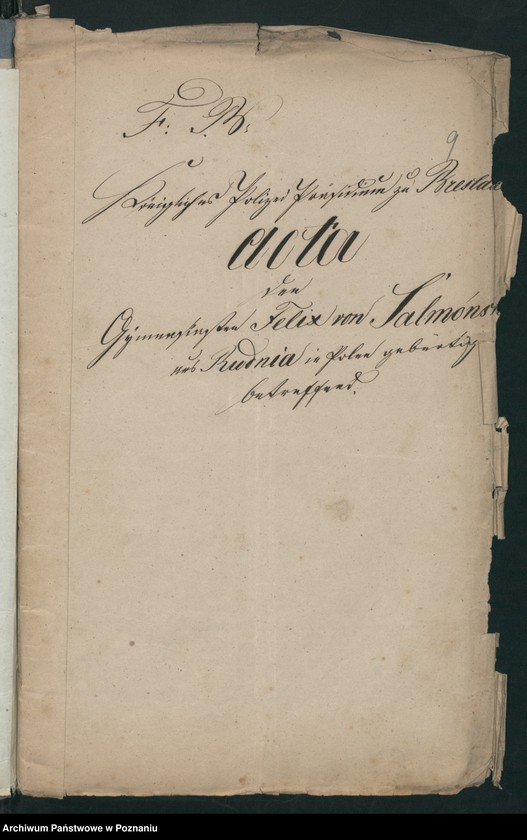 F. B.
9
Königliches Polizei Präsidium zu Breslau
Acta
den
Gymnasiasten Felix von Salmonsk
aus Rudnia in Polen gebürtig
betreffend.
Archiwum Państwowe w Poznaniu